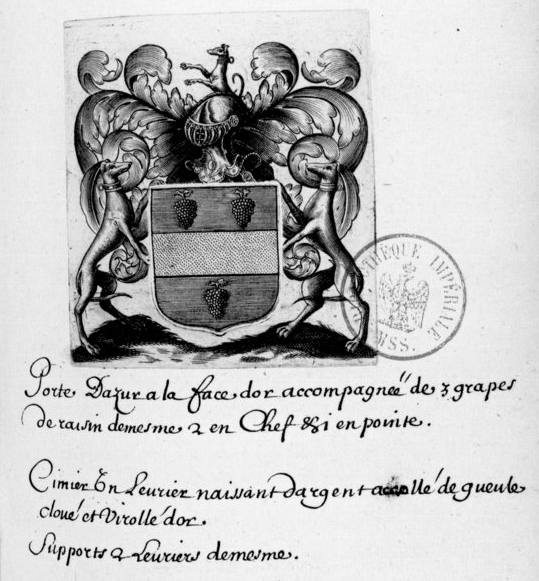 BIBLIOTHÈQUE IMPÉRIALE
MSS.
Porte Dazur a la face dor accompagneé de 3 grapes
de raisin demesme 2 en Chef & 1 en pointe.
Cimier Un Leurier naissant dargent accollé de gueule
cloué et Virollé dor.
Supports 2 Leuriers demesme.